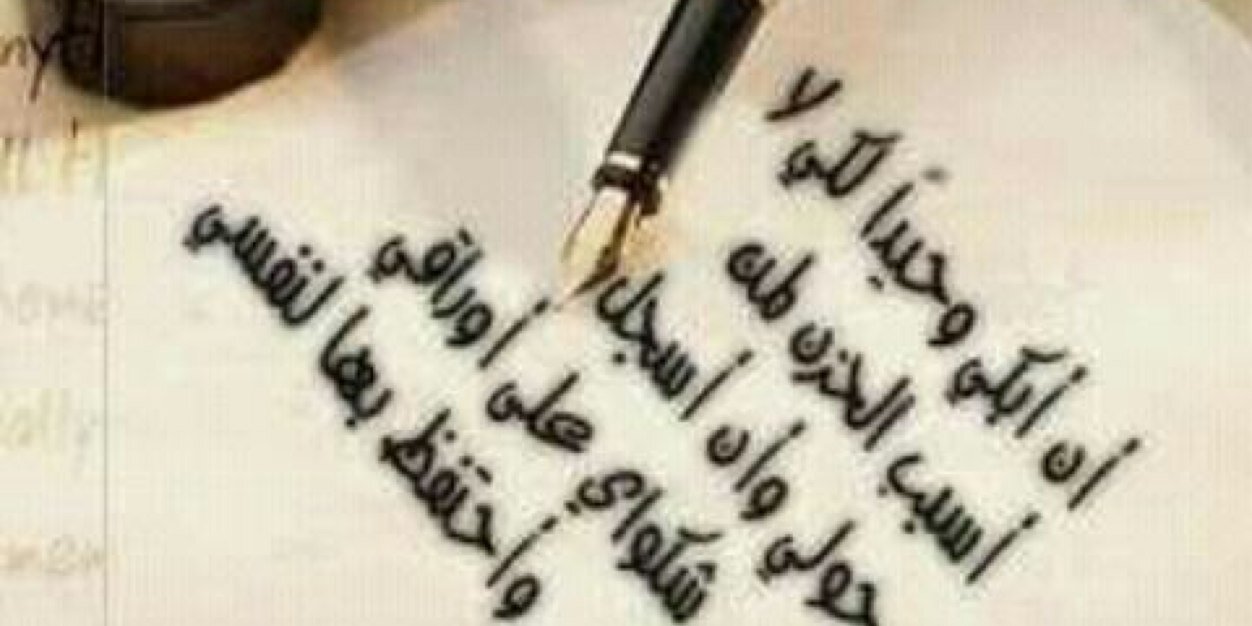 أن أبكي وحيداً لكي لا
أسبب الحزن لمن
حولي وأن أسجل
شكواي على أوراقي
وأحتفظ بها لنفسي